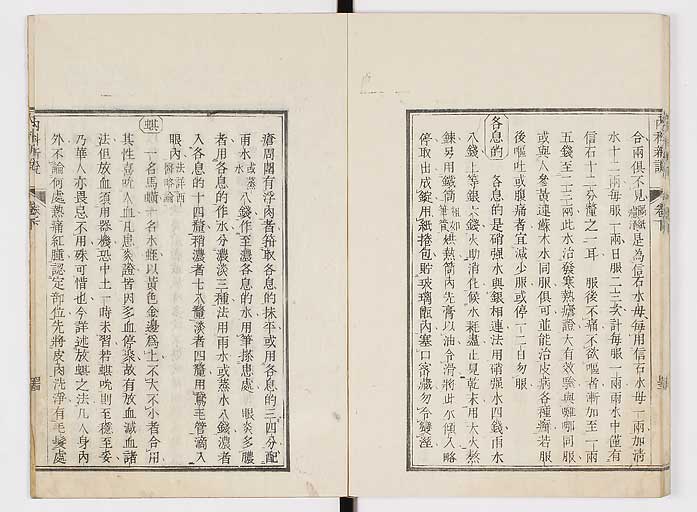 合兩俱不見𥔵𥔵是為信石水毋每用信石水毋一兩加清
水十二兩每服一兩日服二三次計每服一兩雨水中僅有
信石十二分釐之一耳 服後不痛不欲嘔者漸加至一兩
五錢至二三兩此水治發寒熱瘧證大有效驗與雞哪同服
或與人參黃連蘇木水同服俱可並能治皮病各種癬若服
後嘔吐或腹痛者宜減少服或停一二日勿服
各息的 各息的是硝强水與銀相連法用硝强水四錢雨水
八錢上等銀六錢火助消化候水耗盡止見乾末用大火熬
鎔另用鐵筒
停取出成錠用紙捲包貯玻璃瓶內塞口密藏勿令變溼
瘡周圍有浮肉者箝取各息的抹平或用各息的三四分配
雨水八錢作至濃各息的水用筆搽患處 眼炎多膿
者用各息的作水分濃淡三種法用雨水或蒸水八錢濃者
入各息的十四釐稍濃者七八釐淡者四釐用鵞毛管滴入
眼內法詳西醫略論
蜞 一名馬蟥一名水蛭以黃色金邊為上不大不小者合用
其性喜吮人血凡患炎證皆因多血停聚故有放血減血諸
法但放血須用器機恐中土一時未習若蜞吮則至穩至妥
乃華人亦畏忌不用殊可惜也今詳述放蜞之法凡人身內
外不論何處熱痛紅腫認定部位先將皮肉洗淨有毛髮處